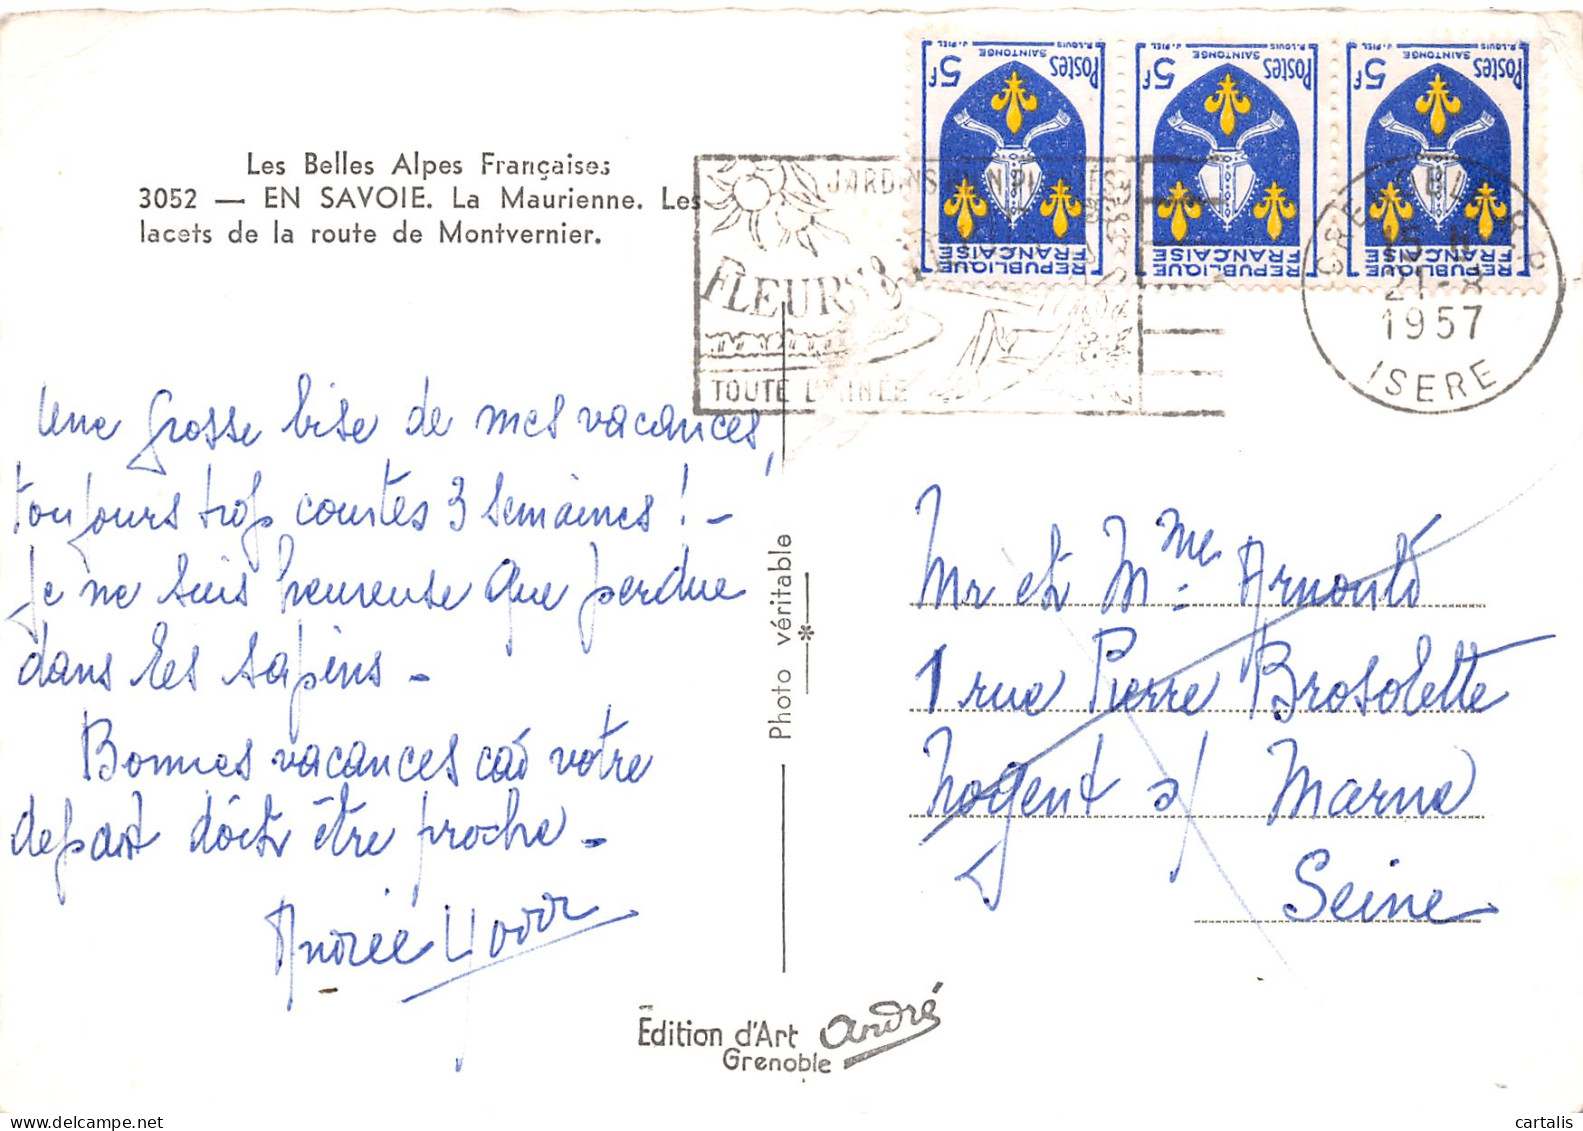 Les Belles Alpes Françaises
3052 — EN SAVOIE. La Maurienne. Les
lacets de la route de Montvernier.
Une grosse bise de mes vacances,
toujours trop courtes 3 semaines ! –
Je ne suis heureuse que perdue
dans les sapins –
Bonnes vacances car votre
depart doit être proche –
Andrée
Photo véritable
Edition d'Art André
Grenoble
5F Postes
SAINTONGE
R. LOUIS J. PIEL
REPUBLIQUE
FRANÇAISE
5F Postes
SAINTONGE
R. LOUIS J. PIEL
REPUBLIQUE
FRANÇAISE
5F Postes
SAINTONGE
R. LOUIS J. PIEL
REPUBLIQUE
FRANÇAISE
FLEURS &
TOUTE L'ANNÉE
GRENOBLE
15 H
21-8
1957
ISERE
Mr et Mme Arnould
1 rue Pierre Brosolette
Nogent s/ Marne
Seine
cartalis